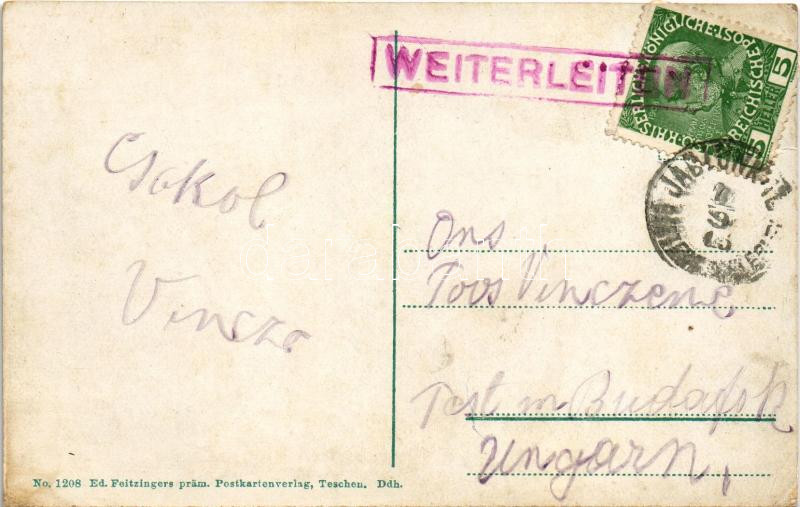 WEITERLEITEN
KAISERLICHE KÖNIGLICHE ÖSTERREICHISCHE POST
5 HELLER 5
Csokol
Vincze
Ons
Toos Vinczene
Test in Budafok
Ungarn,
No. 1208 Ed. Feitzingers präm. Postkartenverlag, Teschen. Ddh.